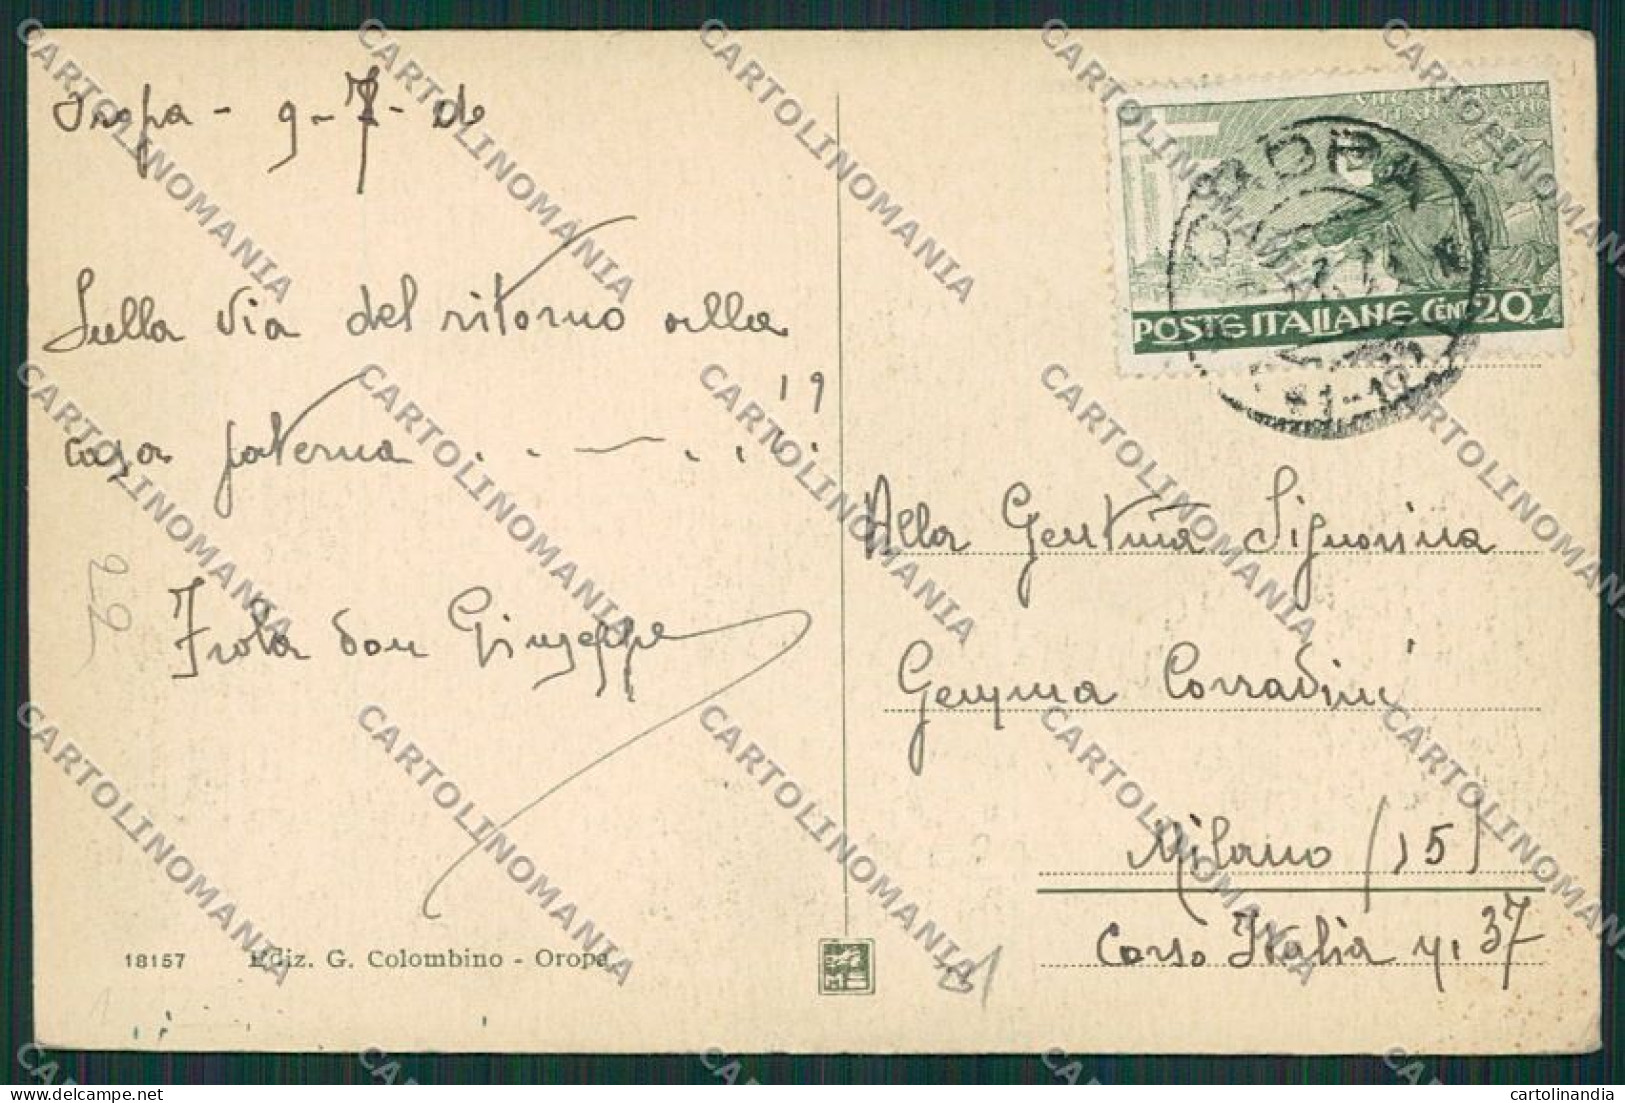 Oropa - 9-7-
Sulla via del ritorno alla
casa paterna . . . . . .
Isola don Giuseppe
22
18157 Ediz. G. Colombino - Oropa
POSTE ITALIANE CENT 20
OROPA
Alla Gent.ma Signorina
Gemma Corradini
Milano (15)
Corso Italia n. 37
CARTOLINOMANIA
cartolinandia